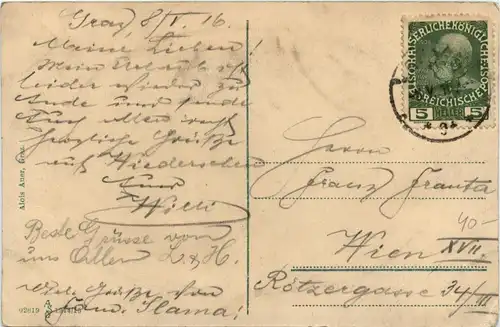 Graz, 8/V. 16.
Meine Lieben!
Mein Urlaub ist
leider wieder zu
Ende und sende
Euch allen recht
herzliche Grüße
auf Wiedersehen
Euer
Willi
Beste Grüsse von
uns Allen L. & H.
Viele Grüße von
Fam. Slama!
Alois Auer, Graz.
02619
KAISERLICHE KÖNIGLICHE
ÖSTERREICHISCHE
5 HELLER 5
Herrn
Franz
Wien
XVII.
40-
Rötzergasse 34/III